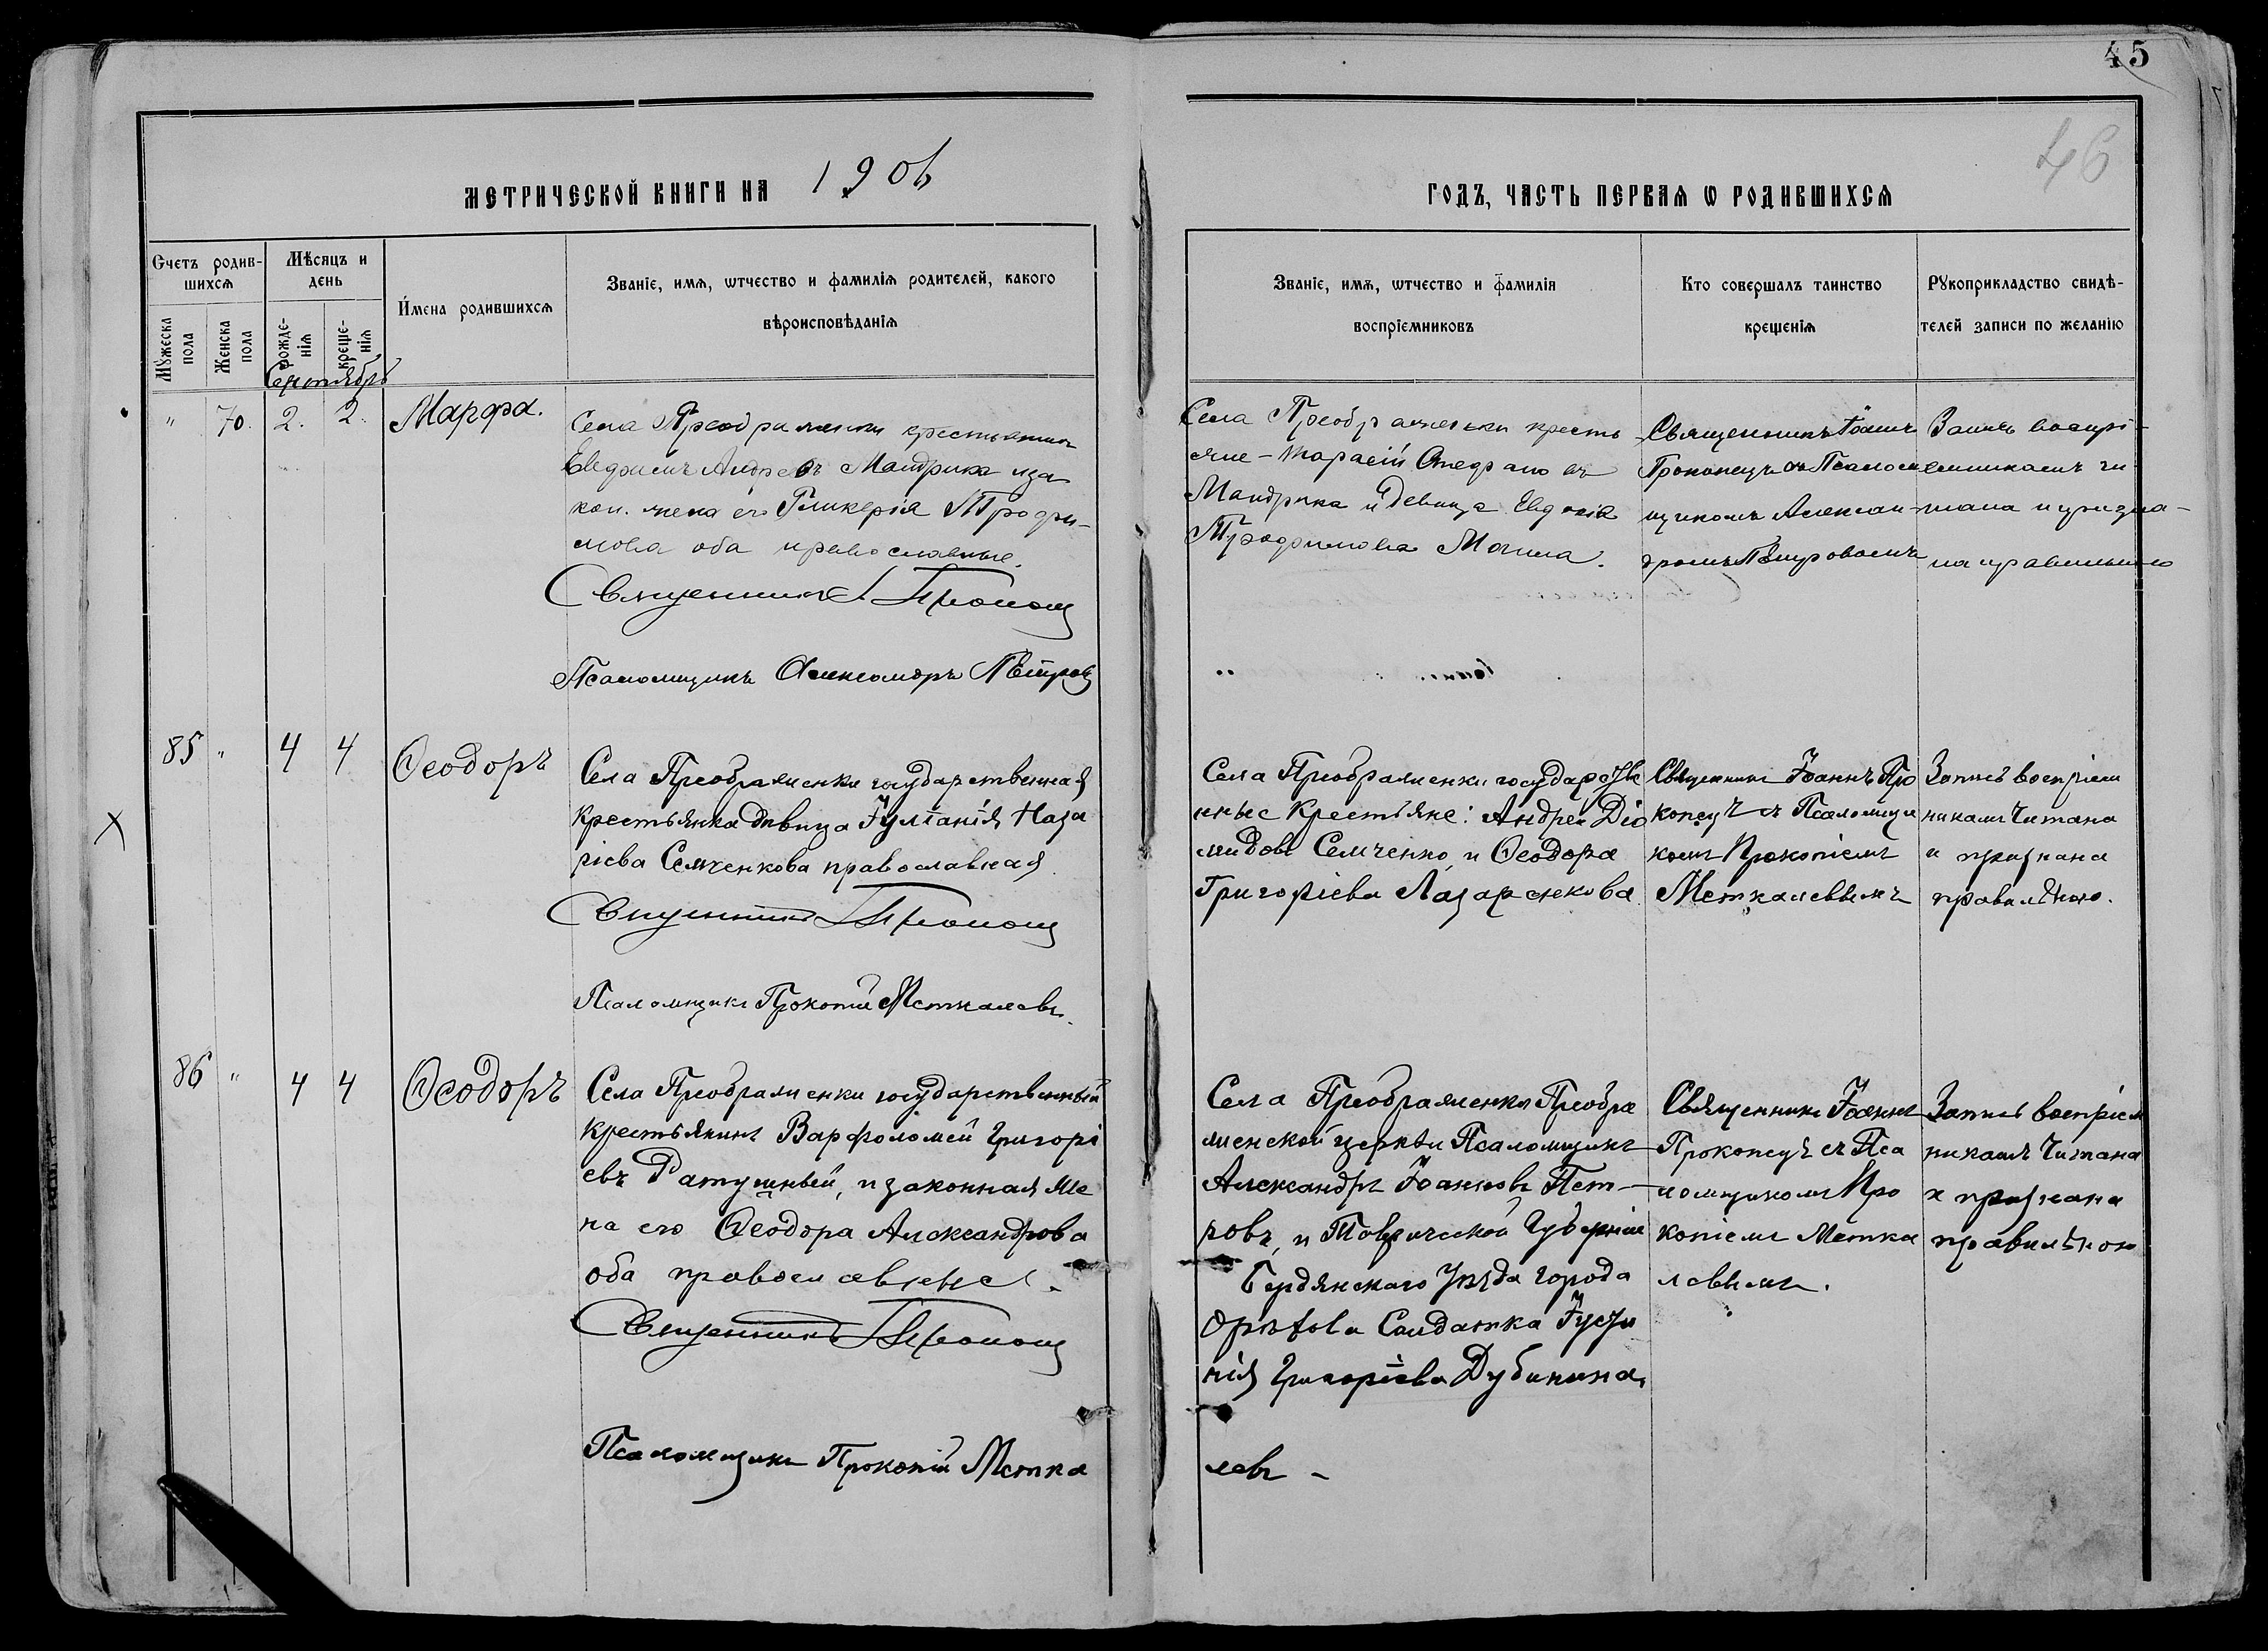 45
46
МЕТРИЧЕСКОЙ КНИГИ НА 1906
ГОДЪ, ЧАСТЬ ПЕРВАЯ Ѡ РОДИВШИХСЯ
Счетъ родив-
шихся
Мужеска пола
Женска пола
Мѣсяцъ и
день
рожде-
нія
креще-
нія
Имена родившихся
Званіе, имя, ѡтчество и фамилія родителей, какого
вѣроисповѣданія
Званіе, имя, ѡтчество и фамилія
воспріемниковъ
Кто совершалъ таинство
крещенія
Рукоприкладство свидѣ-
телей записи по желанію
Сентябрь
" 70. 2. 2. Марфа.
Села Преображенки крестьянинъ
Евфимъ Андреевъ Мандрика и за
кон. жена его Гликерія Трофи-
мова оба православные.
Священникъ І Прокопец
Псаломщикъ Александръ Петровъ
Села Преображеньки кресть
яне - Тарасій Стефановъ
Мандрика и девица Евдокія
Трофимова Мочина.
Священникъ Іоаннъ
Прокопецъ съ Псалом
щикомъ Алексан-
дромъ Петровымъ
Запись воспрі-
емникамъ чи-
тана и призна-
на правильною
85 " 4 4 Ѳеодоръ
Села Преображенки государственная
крестьянка девица Іуліанія Наза
ріева Семченкова православная
Священникъ І Прокопец
Псаломщикъ Прокопій Меткалевъ.
Села Преображенки государстве
нные Крестьяне: Андрей Діо
мидовъ Семченко, и Ѳеодора
Григоріева Лазаренкова
Священникъ Іоаннъ Про
копецъ съ Псаломщи
комъ Прокопіемъ
Меткалевымъ
Запись воспріем
никамъ Читана
и признана
правильною.
86 " 4 4 Ѳеодоръ
Села Преображенки государственный
крестьянинъ Варфоломей Григорі
евъ Ратушный, и законная же
на его Ѳеодора Александрова
оба православные.
Священникъ І Прокопец
Псаломщикъ Прокопій Метка
левъ -
Села Преображенки Преобра
женской церкви Псаломщикъ
Александръ Іоанновъ Пет-
ровъ, и Таврической Губерніи
Бердянскаго Уѣзда города
Орѣхова Солдатка Іусти
нія Григоріева Дубинина,
Священникъ Іоаннъ
Прокопецъ съ Пса
ломщикомъ Про
копіемъ Метка
левымъ.
Запись воспріем
никамъ Читана
и признана
правильною